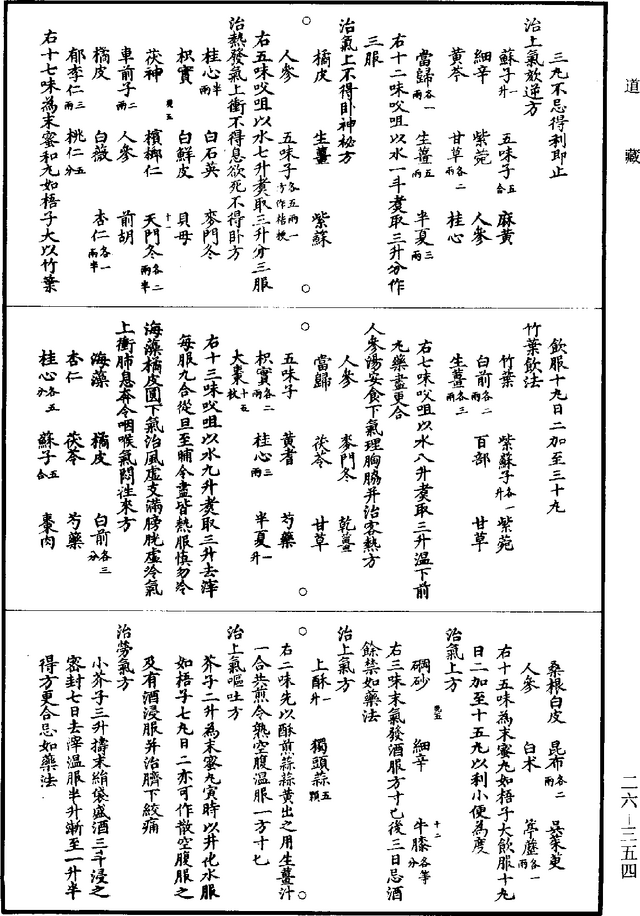 道藏
三丸不忌得利即止
治上氣欬逆方
蘇子一升 五味子五合 麻黄
細辛 紫菀 人參
黄芩 甘草各二兩 桂心
當歸各一兩 生薑五兩 半夏三兩
右十二味㕮咀以水一斗煑取三升分作
三服
治氣上不得卧神秘方
橘皮 生薑 紫蘇
人參 五味子各五兩一方作桔梗
右五味㕮咀以水七升煑取三升分三服
治熱發氣上衝不得息欲死不得卧方
桂心半兩 白石英 麥門冬
枳實 白鮮皮 貝母
茯神 檳榔仁 天門冬各二兩半
車前子二兩 人參 前胡
橘皮 白薇 杏仁各一兩半
郁李仁三兩 桃仁五分
右十七味為末蜜和丸如梧子大以竹葉
飲服十丸日二加至三十丸
竹葉飲法
竹葉 紫蘇子各一升 紫菀
白前各二兩 百部 甘草
生薑各三兩
右七味㕮咀以水八升煑取三升温下前
丸藥盡更合
人參湯安食下氣理胸脇并治客熱方
人參 麥門冬 乾薑
當歸 茯苓 甘草
五味子 黄耆 芍藥
枳實各二兩 桂心三兩 半夏一升
大棗十五枚
右十三味㕮咀以水九升煑取三升去滓
每服九合從旦至晡令盡皆熱服慎勿冷
海藻橘皮圓下氣治風虚支滿膀胱虚冷氣
上衝肺息奔令咽喉氣悶往來方
海藻 橘皮 白前各三分
杏仁 茯苓 芍藥
桂心各五分 蘇子五合 棗肉
桑根白皮 昆布各二兩 吳茱萸
人參 白术 葶藶各一兩
右十五味為末蜜丸如梧子大飲服十丸
日二加至十五丸以利小便為度
治氣上方
硇砂 細辛 牛膝各等分
右三味末氣發酒服方寸匕後三日忌酒
餘禁如藥法
治上氣方
上酥一升 獨頭蒜五顆
右二味先以酥煎蒜蒜黄出之用生薑汁
一合共煎令熟空腹温服一方寸匕
治上氣嘔吐方
芥子二升為末蜜丸寅時以井花水服
如梧子七丸日二亦可作散空腹服之
及有酒浸服并治臍下絞痛
治勞氣方
小芥子三升擣末絹袋盛酒三斗浸之
密封七日去滓温服半升漸至一升半
得方更合忌如藥法
二六—三五四